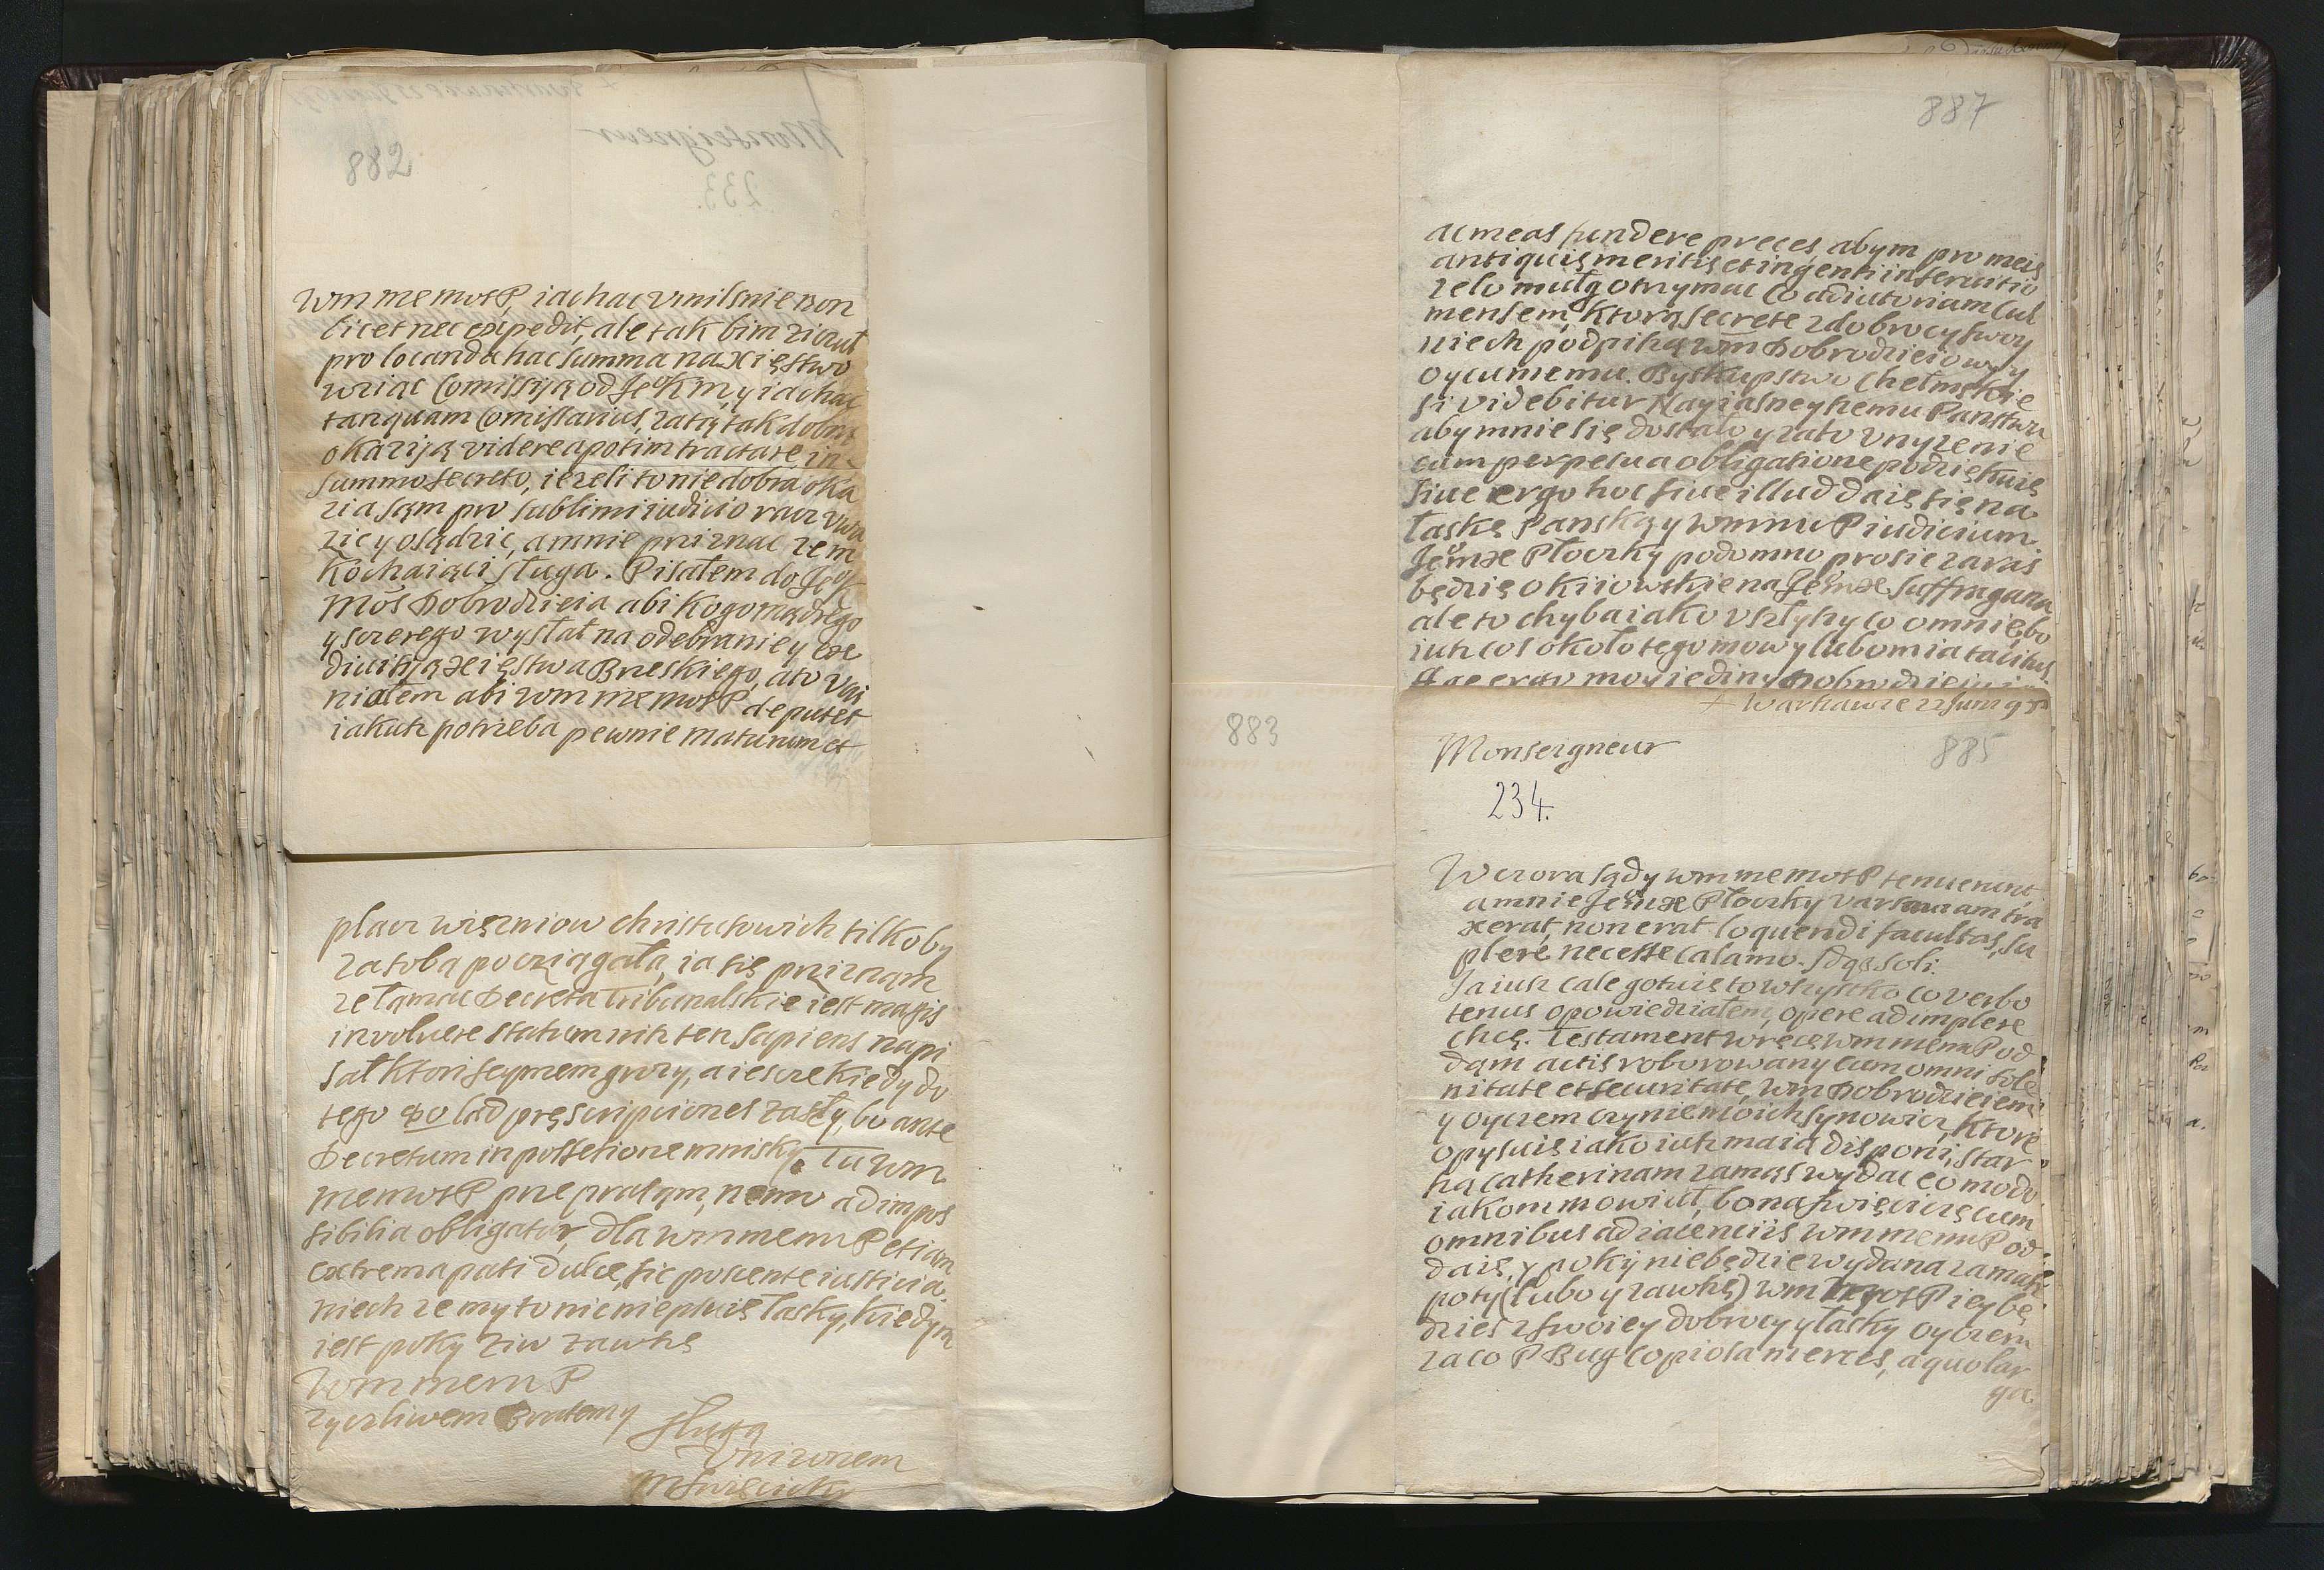 882
Wm memot P, iachac umilsnie non
licet nec expedit, ale tak bim ziczut
pro locanda hac summa na Xięstwo
wziąc Comissiją od Je K M, y iachac
tanquam Comissarius, zatą tak dobrą
okaziją videre a potim tractare in
summo secreto, iezeli to nie dobra oka
zia sąm pro sublimi iudicio racz uwa
zic y osądzic, a mnie priznac zem
Kochaiąci sługa. Pisałem do Je
Mos dobrodzieia abi kogo mądrego
y szczerego wysłał na odebranie y
xięstwa Brzeskiego, a to uczi
niałem abi wm memot P deputet
iakuh potrzeba pewnie maturum et
placz więzniow christusowich tilko by
za tobą pociągała, ia się przizagm
ze łąmac Decreta Tribunalskie iest magis
involuere statum nih ten sapiens napi
sał ktori seymem grozy, a iescze kiedy do
tego lad pręscripciones zasły, bo ante
Decretum in possesione mnisky. Tu wm
memot P przepraszm, nemo ad impos
sibilia obligatur, dla wm memu P etiam
extrema pati dulce, sic poscente iusticia.
niech ze my to nic nie psuię łasky, kiedym
iest poky ziw zawhe
Wm mem P
zyczliwem Bratem y sługą
Unizonem
MSwięcicki
883
887
ac meas fundere preces abym pro meis
antiquis meritis et ingenti inseruitio
zelo mułg otrzymac Coadiutoriam Cul
mensem, ktorą secrete z dobrocy swoy
niech podpihą wm Dobrodzieiowy y
oycu memu. Byskupstwo Chełmskie
si videbitur Nayiasneyhemu Panstwu
aby mnie się dostało y za to Unyzenie
cum perpetua obligatione podziękuię
siue ergo hoc siue illud daię się na
łaskę Panską y wm mu P iudicium.
Jemxe Płoczky podomno prosic zaras
będzię o kiiowskie na Jemxe Suffragana
ale to chyba iako uszłyhy co o mnie, bo
iuh cos około tego mowy lubom ia tacitus.
Age ergo moy iediny Dobrodzieiu
Warhawie 22 Juni 95
Monseigneur
885
234.
Wczora sądy wm memot P tenuerunt,
a mnie Jemxe Płoczky Varsauiam tra
xerat, non erat loquendi facultas, su
plere necesse calamo. Sdąs soli.
Ja iuh cale gotuię to whystko co verbo
tenus opowiedziałem, opere adimplere
chcę. Testament w ręcę wm memu P od
dąm actis roborowany cum omni sole
nitate et securitate, wm Dobrodzieiem
y oycem czynię moich synowicz, ktore
opysuię iako iuh maią disponi, star
hą Catherinam zamąs wydac eo modo
iakom mowiuł, bona Swięcicę cum
omnibus adiacenciis wm memu P od
daię, y poky nie będzie wydana za mąh
poty (lubo y zawhę) wm memot P iey bę
dzies z swoiey dobrocy y łasky oycem
za co P Bug copiosa merces, a quo lar
ga